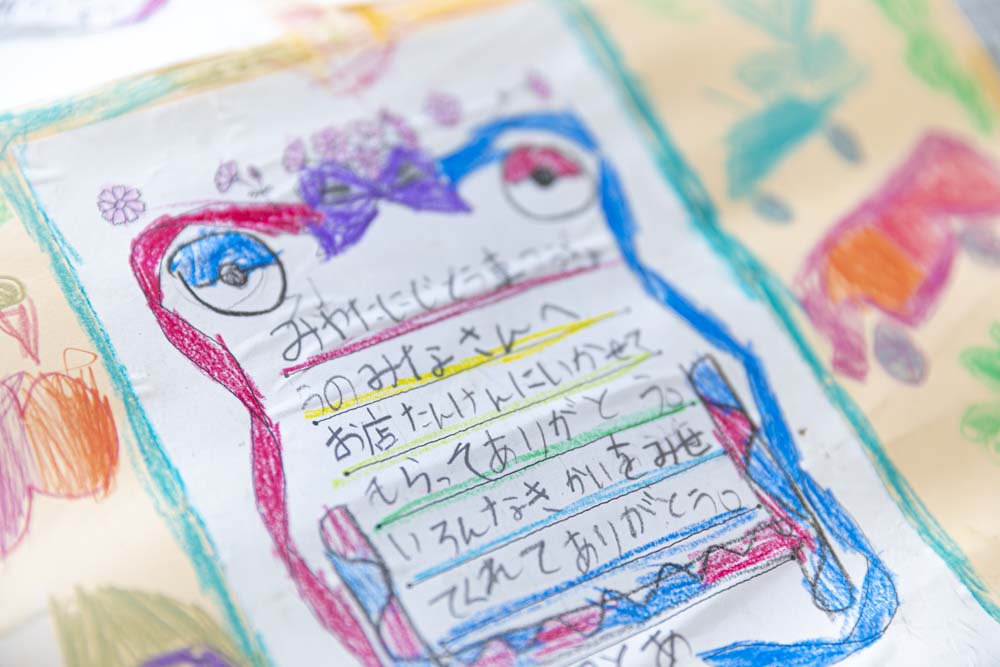 みわたにじどう
うのみなさんへ
お店たんけんにいかせて
もらってありがとう。
いろんなきかいをみせ
てくれてありがとう。